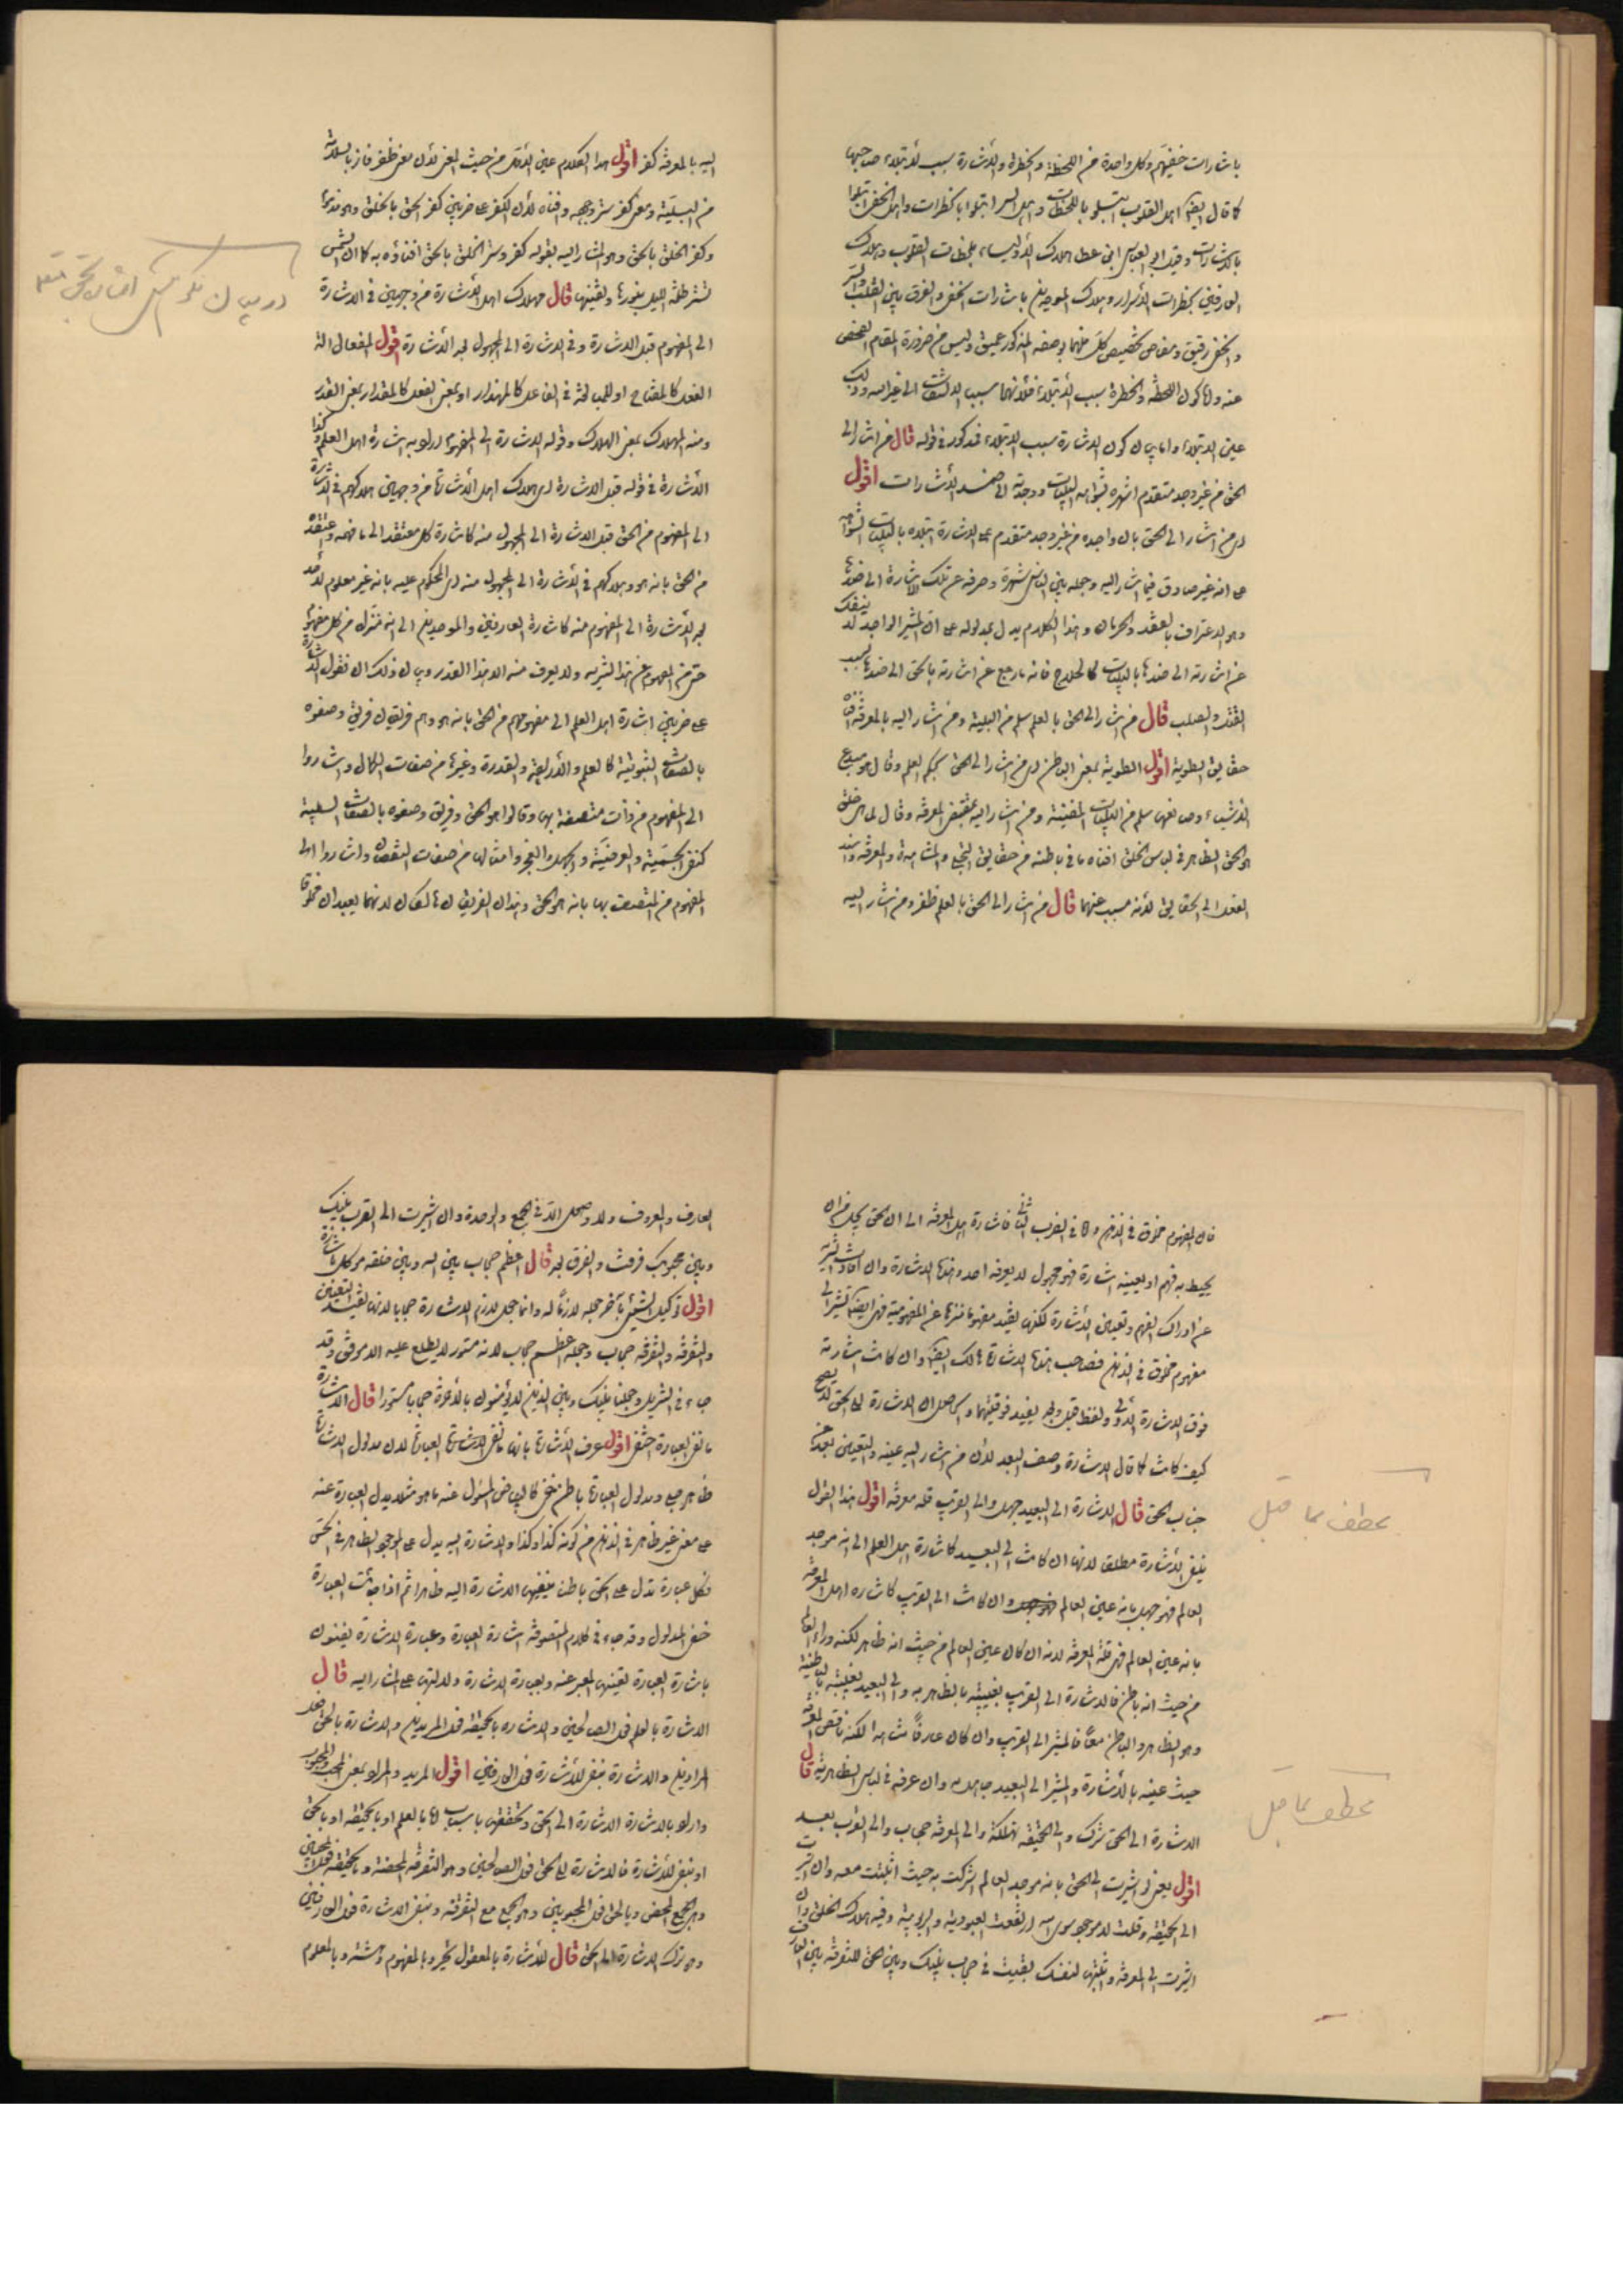 باشارات خفيهم وكل واحدة من اللحظة والخطرة والاشارة سبب لابتلاء صاحبها
كما قال ايضا اهل القلوب ابتلوا باللحظات واهل السر ابتلوا بالخطرات واهل الخفى ابتلوا
بالاشارات وقيل ابى العباس ابن عطا هلاك الاولياء بلحظات القلوب وهلاك
العارفين بخطرات الاسرار وهلاك الموحدين باشارات الخفى والفرق بين القلب والسر
والخفى دقيق ومعاص تخصيص كل منهما بوصفه المذكور عميق وليس من ضرورة المقام الفحص
عنه واما كون اللحظة والخطرة سبب الابتلاء فلانهما سبب الالتفات الى غير الله وذلك
عين الابتلاء واما بيان كون الاشارة سبب الابتلاء فمذكور فى قوله قال من اشار الى
الحق من غير وجد متقدم اشهره بشواهد البليات ووجدته الى ضد الاشارات اقول
اى من اشار الى الحق بان واجده من غير وجد متقدم على الاشارة ابتلاه بالبليات الشواهد
على انه غير صادق فيما اشار اليه وجعله بين الناس شهرة وصرفه عن تلك الاشارة الى ضدها
وهو الاعتراف بالفقد والحرمان وهذا الكلام يدل بمدلوله على ان المشير الواجد لا ينفك
عن اشارته الى ضدها بالبليات كالحلاج فانه ما رجع عن اشارته بالحق الى ضدها بسبب
القتل والصلب قال من اشار الى الحق بالعلم سلم من البلية ومن اشار اليه بالمعرفة افناه
حقايق الطوية اقول الطوية بمعنى الباطن اى من اشار الى الحق بحكم العلم وقال هو مبدع
الاشياء وصانعها سلم من البليات المفنية ومن اشار اليه بمقتضى المعرفة وقال ما هى خلق
هو الحق الظاهر فى لباس الخلق افناه ما فى باطنه من حقايق التجلى والمشاهدة والمعرفة واسند
الفعل الى الحقايق لانه مسبب عنهما قال من اشار الى الحق بالعلم ظفر ومن اشار اليه
اليه بالمعرفة كفر اقول هذا الكلام عين الاول من حيث المعنى لان معنى ظفر فاز بالسلامة
من البلية ومعنى كفر ستر وجهه وافناه لان الكفر على ضربين كفر الحق بالخلق وهو مذموم
وكفر الخلق بالحق وهو المشار اليه بقوله كفر وستر الخلق بالحق افناؤه به كما ان الشمس
تستر ظلمة الليل بنورها وتفنيها قال مهلاك اهل الاشارة من وجهين فى الاشارة
الى المفهوم قبل الاشارة وفى الاشارة الى المجهول بعد الاشارة اقول المفعال آلة
الفعل كالمفتاح او للمبالغة فى الفاعل كالمهذار او بمعنى الفعل كالمقدار بمعنى القدر
ومنه المهلاك بمعنى الهلاك وقوله الاشارة الى المفهوم اراد به اشارة اهل العلم وكذا
الاشارة فى قوله قبل الاشارة اى هلاك اهل الاشارة من وجهين هلاكهم فى الاشارة
الى المفهوم من الحق قبل الاشارة الى المجهول منه كاشارة كل معتقد الى ما فهمه واعتقده
من الحق بانه هو وهلاكهم فى الاشارة الى المجهول منه اى المحكوم عليه بانه غير معلوم لاحد
بعد الاشارة الى المفهوم منه كاشارة العارفين والموحدين الى انه منزه من كل مفهوم
حتى من المفهوم من هذا التنزيه ولا يعرف منه الا هذا القدر وبيان ذلك ان نقول الاشارة
على ضربين اشارة اهل العلم الى مفهومهم من الحق بانه هو وهم فريقان فريق وصفوه
بالصفات الثبوتية كالعلم والارادة والقدرة وغيرها من صفات الكمال واشاروا
الى المفهوم من ذات متصفة بها وقالوا هو الحق وفريق وصفوه بالصفات السلبية
كنفى الجسمية والعرضية والجهل والعجز وامثالها من صفات النقصان واشاروا الى
المفهوم من المتصف بها بانه هو الحق وهذان الفريقان هالكان لانهما يعبدان مخلوقا
فان المفهوم مخلوق فى الذهن واما فى الضرب الثانى فاشارة اهل المعرفة الى ان الحق يجل من ان
يحيط به فهم او يعينه اشارة فهو مجهول لا يعرفه احد وهذه الاشارة وان افادت التنزيه
عن ادراك الفهم وتعيين الاشارة لكنها تفيد مفهوما منزها عن المفهومية فهى ايضا تشير الى
مفهوم مخلوق فى الذهن فصاحب هذه الاشارة هالك ايضا وان كانت اشارته
فوق الاشارة الاولى ولفظ قبل وبعد يفيد فوقيتهما والحاصل ان الاشارة الى الحق لا تصح
كيف كانت كما قال الاشارة وصف البعد لان من اشار اليه عينه والتعيين بعد عن
جناب الحق قال الاشارة الى البعيد جهل والى القريب قلة معرفة اقول هذا القول
ينفى الاشارة مطلقا لانها ان كانت الى البعيد كاشارة اهل العلم الى انه موجد
العالم فهو جهل بانه عين العالم وان كانت الى القريب كاشارة اهل المعرفة
بانه عين العالم فهى قلة المعرفة لانه ان كان عين العالم من حيث انه ظاهر لكنه وراء العالم
من حيث انه باطن فالاشارة الى القريب تغيبه بالظاهرية والى البعيد تغيبه بالباطنية
وهو الظاهر والباطن معا فالمشير الى القريب وان كان عارفا شاهدا لكنه ناقص المعرفة
حيث عينه بالاشارة والمشير الى البعيد جاهل به وان عرفه فى لباس الظاهرية قال
الاشارة الى الحق شرك والى الحقيقة تهلكة والى المعرفة حجاب والى القرب بعد
اقول يعنى لو اشرت الى الحق بانه موجد العالم اشركت به حيث اثبتت معه وان اشرت
الى الحقيقة وقلت لا موجود سوى الله ارتفعت العبودية والربوبية وفيه هلاك الخلق وان
اشرت الى المعرفة واثبتها لنفسك بقيت فى حجاب بينك وبين الحق للتفرقة بين العارف
العارف والمعروف ولا وصل الا فى الجمع والوحدة وان اشرت الى القرب بينك
وبين محبوبك فرقت والفرق بعد قال اعظم حجاب بين الله وبين خلقه موكل بالاشارة
اقول توكيل الشئ بآخر جعله لازما له وانما جعل لازم الاشارة حجابا لانها تفيد التعين
والتفرقة والتفرقة حجاب وجعله اعظم حجاب لانه مستور لا يطلع عليه الا موفق وقد
جاء فى التنزيل وجعلنا بينك وبين الذين لا يؤمنون بالآخرة حجابا مستورا قال الاشارة
ما تفى العبارة اخفى اقول عرف الاشارة بانها ما تفى الاشارة العبارة لان مدلول الاشارة
ظاهر جلى ومدلول العبارة باطن خفى كالبياض المسئول عنه ما هو مثلا يدل العبارة عنه
على معنى غير ظاهر فى الذهن من كونه كذا وكذا والاشارة اليه يدل على الموجود الظاهر فى الحس
فكل عبارة تدل على الحق باطن تنفيها الاشارة اليه ظاهرا ثم اذا جائت العبارة
خفى المدلول وقد جاء فى كلام المتصوفة اشارة العبارة وعبارة الاشارة يعنون
باشارة العبارة تعيينها المعبر عنه وبعبارة الاشارة دلالتها على المشار اليه قال
الاشارة بالعلم فعل الصالحين والاشارة بالحقيقة فعل المريدين والاشارة بالحق فعل
المرادين والاشارة بنفى الاشارة فعل العارفين اقول المريد والمراد بمعنى المحب والمحبوب
واراد بالاشارة الاشارة الى الحق وتحققها باسباب اما بالعلم او بالحقيقة او بالحق
او بنفى الاشارة فالاشارة الى الحق فعل الصالحين وهو التفرقة المحضة وبالحقيقة فعل المحبين
وهى الجمع المحض وبالحق فعل المحبوبين وهو الجمع مع التفرقة وبنفى الاشارة فعل العارفين
وهو ترك الاشارة الى الحق قال الاشارة بالمعقول تحير وبالمفهوم وحشة وبالمعلوم
عطف بما قبل
عطف بما قبل